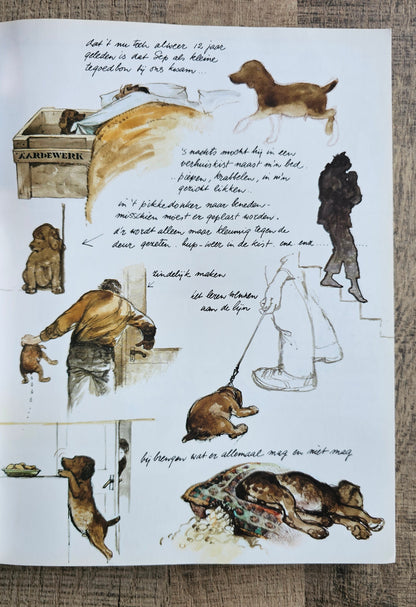 dat 't nu toch alweer 12 jaar
geleden is dat Sep als kleine
tegoedbon bij ons kwam...
AARDEWERK
's nachts mocht hij in een
verhuiskist naast m'n bed.
piepen, krabbelen, in m'n
gezicht likken.
in 't pikkedonker naar beneden-
misschien moest er geplast worden.
d'r wordt alleen maar kleumig tegen de
deur gezeten. hup-weer in de kist. enz enz
zindelijk maken
het leren wennen
aan de lijn
bij brengen wat er allemaal mag en niet mag